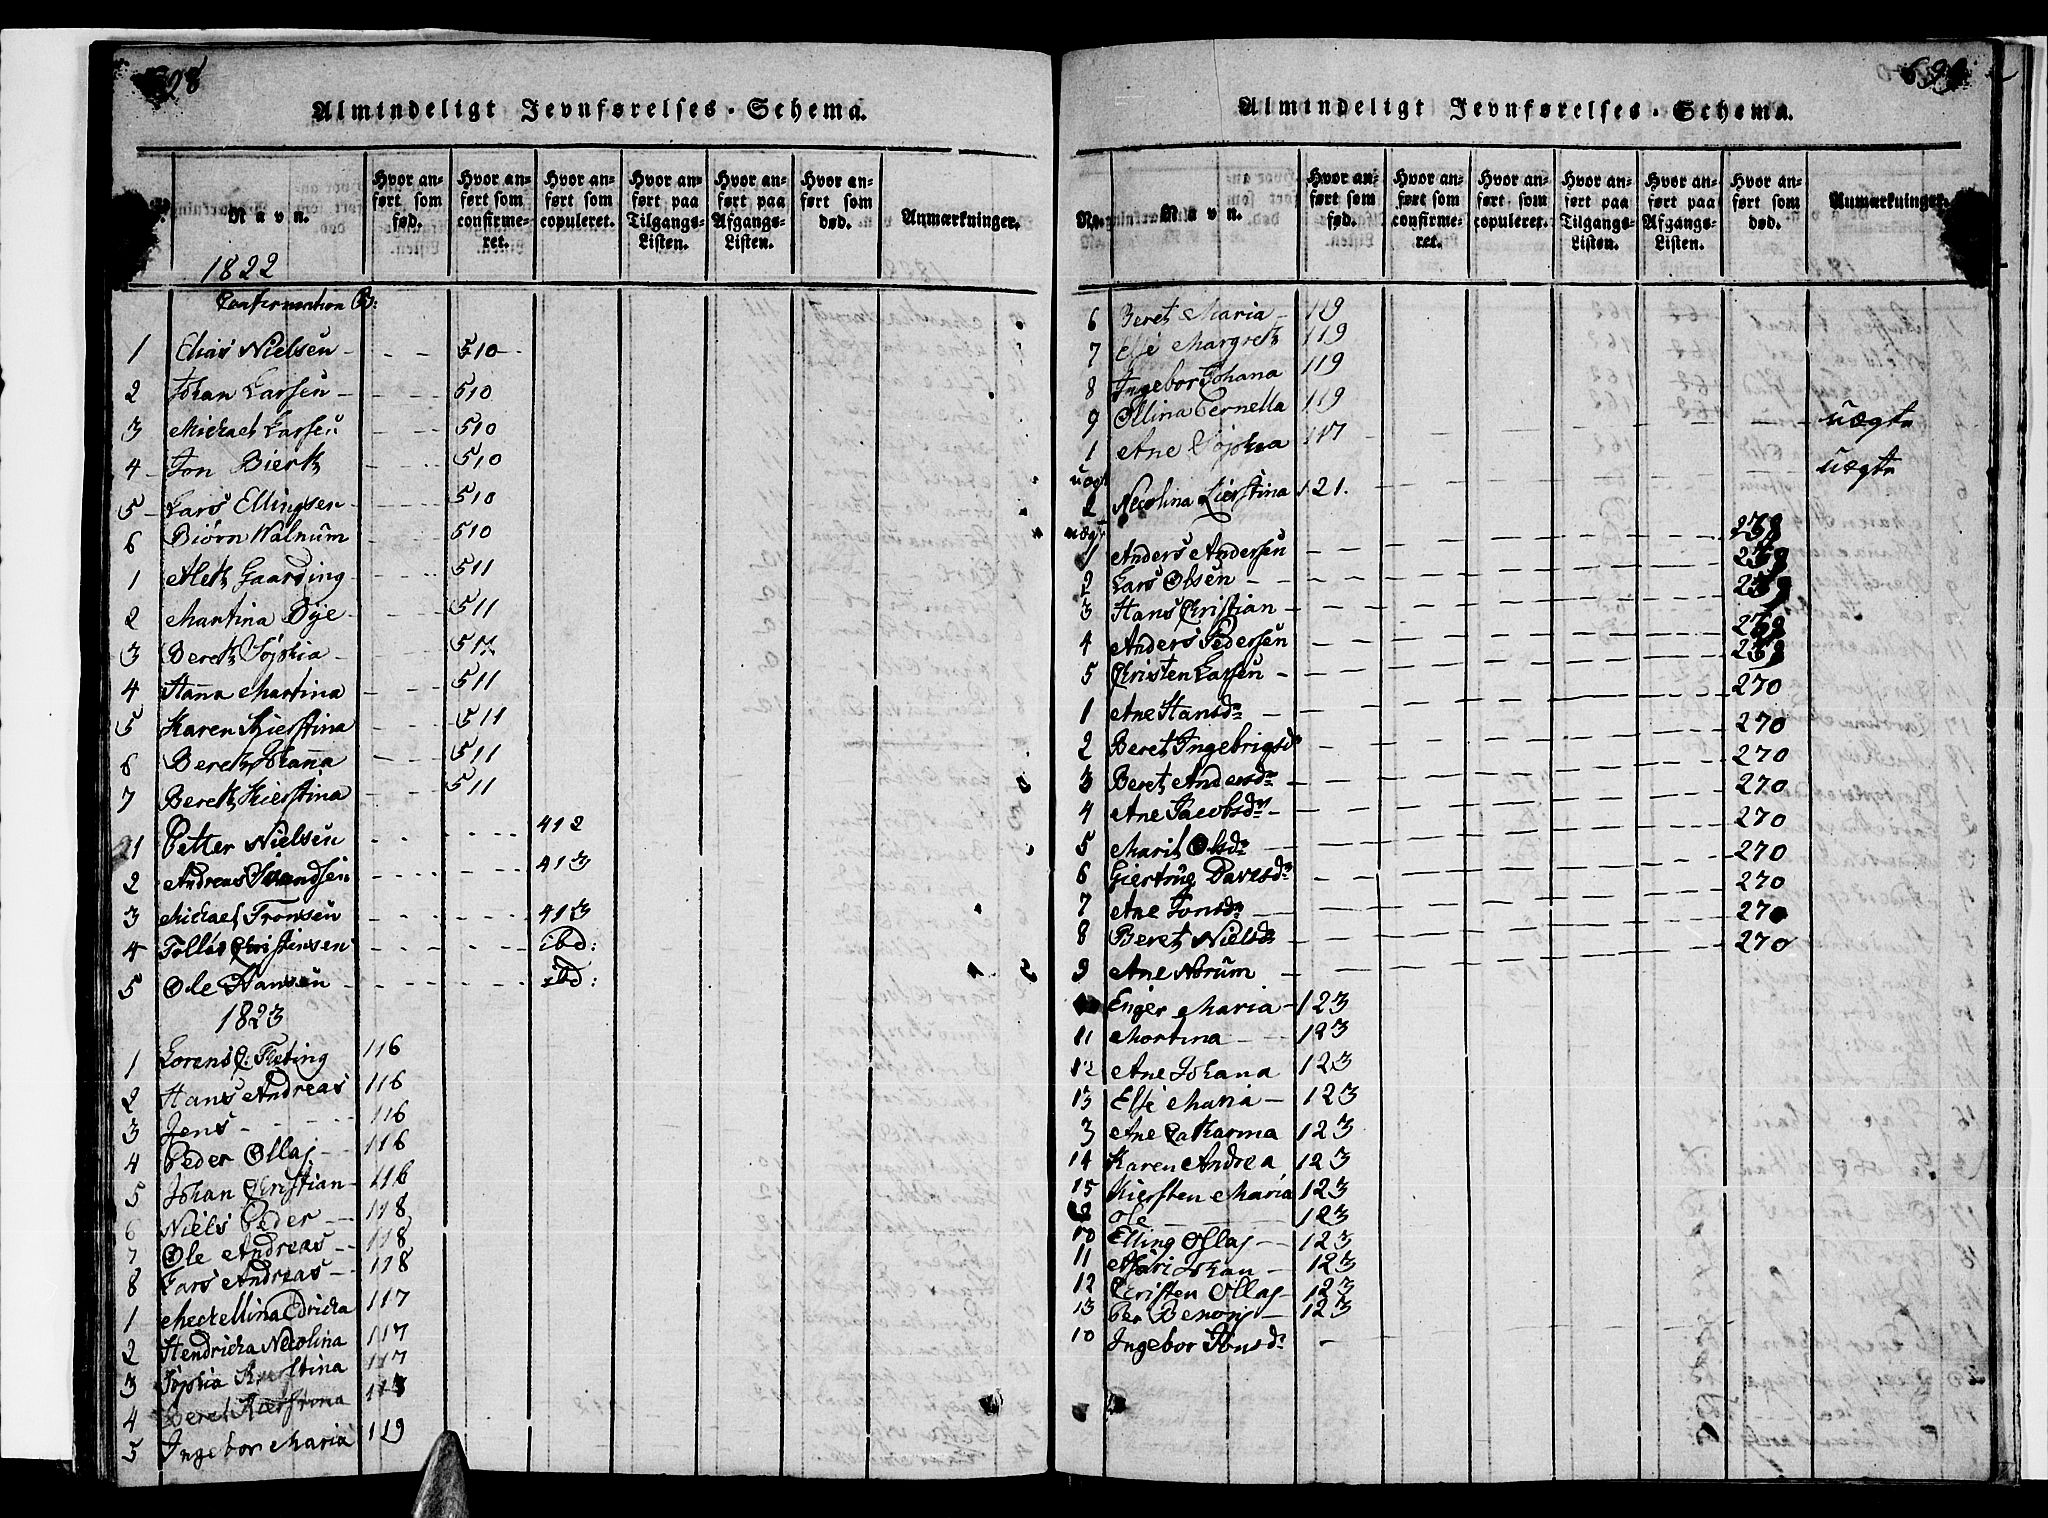 698
Almindeligt Jevnførelses-Schema.
No. Navn. Hvor anført som fød. Hvor anført som confirmeret. Hvor anført som copuleret. Hvor anført paa Tilgangs-Listen. Hvor anført paa Afgangs-Listen. Hvor anført som død. Anmærkninger.
1822
Confirmention B:
1 Elias Nielsen 510
2 Johan Larsen 510
3 Michael Larsen 510
4 Jon Biertz 510
5 Lars Ellingsen 510
6 Biørn Walnum 510
1 Aletz Gaarding 511
2 Martina Øye 511
3 Beretz Sophia 511
4 Hanna Martina 511
5 Karen Kierstina 511
6 Beretz Johanna 511
7 Beretz Kierstina 511
1 Petter Nielsen 412
2 Andreas Svendsen 413
3 Michael Tronsen 413
4 Tollas Christensen ibd:
5 Ole Hansen ibd:
1823
1 Lorens C: Fleting 116
2 Hans Andreas 116
3 Jens 116
4 Peder Ollaj 116
5 Johan Christian 116
6 Niels Peder 118
7 Ole Andreas 118
8 Lars Andreas 118
1 Mectellina Edricka 117
2 Hendricka Necolina 117
3 Sophia Kierstina 117
4 Beret Kierstina 113
5 Ingebor Maria 119
699
Almindeligt Jevnførelses-Schema.
No. Navn. Hvor anført som fød. Hvor anført som confirmeret. Hvor anført som copuleret. Hvor anført paa Tilgangs-Listen. Hvor anført paa Afgangs-Listen. Hvor anført som død. Anmærkninger.
6 Beret Maria 119
7 Else Margretz 119
8 Ingebor Johana 119
9 Ollina Pernella 119
1 Ane Sophia 117 uægte
uægt
2 Necolina Kierstina 121. uægte
uægt
1 Anders Andersen
2 Lars Olsen
3 Hans Christian
4 Anders Pedersen
5 Christen Larsen
1 Ane Hansdr 270
2 Beret Ingebrigsdr 270
3 Beret Andersdr 270
4 Ane Jacobsdr 270
5 Marit Olsdr 270
6 Giertrug Davisdr 270
7 Ane Jonsdr 270
8 Beret Nielsdr 270
9 Ane Norum 270
Enger Maria 123
11 Mortina 123
12 Ane Johana 123
13 Else Maria 123
3 Ane Catharina 123
14 Karen Andrea 123
15 Kiersten Maria 123
Ole 123
10 Elling Ollaj 123
11 Johan 123
12 Christen Ollaj 123
13 Per Benonj 123
10 Ingebor Jonsdr